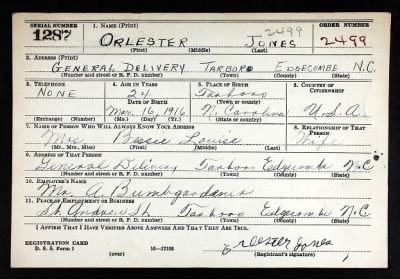 SERIAL NUMBER 1. NAME (Print) ORDER NUMBER
2499
1287 ORLESTER JONES 2499
(First) (Middle) (Last)
2. ADDRESS (Print)
GENERAL DELIVERY TARBORO EDGECOMBE N.C.
(Number and street or R. F. D. number) (Town) (County) (State)
3. TELEPHONE 4. AGE IN YEARS 5. PLACE OF BIRTH 6. COUNTRY OF CITIZENSHIP
NONE 24 Tarboro
DATE OF BIRTH (Town or county)
Mar. 16, 1916 N. Carolina U.S.A.
(Exchange) (Number) (Mo.) (Day) (Yr.) (State or country)
7. NAME OF PERSON WHO WILL ALWAYS KNOW YOUR ADDRESS 8. RELATIONSHIP OF THAT PERSON
Mrs Bessie Louise Wife
(Mr., Mrs., Miss) (First) (Middle) (Last)
9. ADDRESS OF THAT PERSON
General Delivery Tarboro Edgecombe N.C
(Number and street or R. F. D. number) (Town) (County) (State)
10. EMPLOYER'S NAME
A.
11. PLACE OF EMPLOYMENT OR BUSINESS
St. Andrew St. Tarboro Edgecombe N.C
(Number and street or R. F. D. number) (Town) (County) (State)
I AFFIRM THAT I HAVE VERIFIED ABOVE ANSWERS AND THAT THEY ARE TRUE.
REGISTRATION CARD
D. S. S. Form 1 16—17105 Orlester Jones
(Registrant's signature)